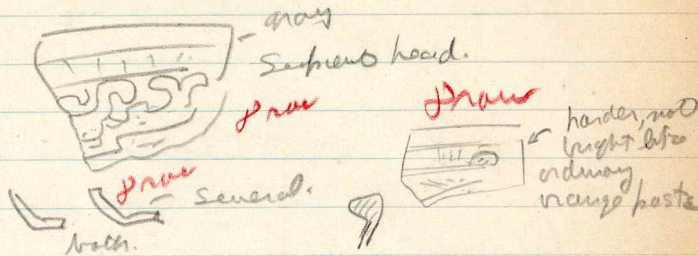 gray
Serpent head.
Draw
Draw
harder, not
bright like
ordinary
orange paste
Draw
several.
both.